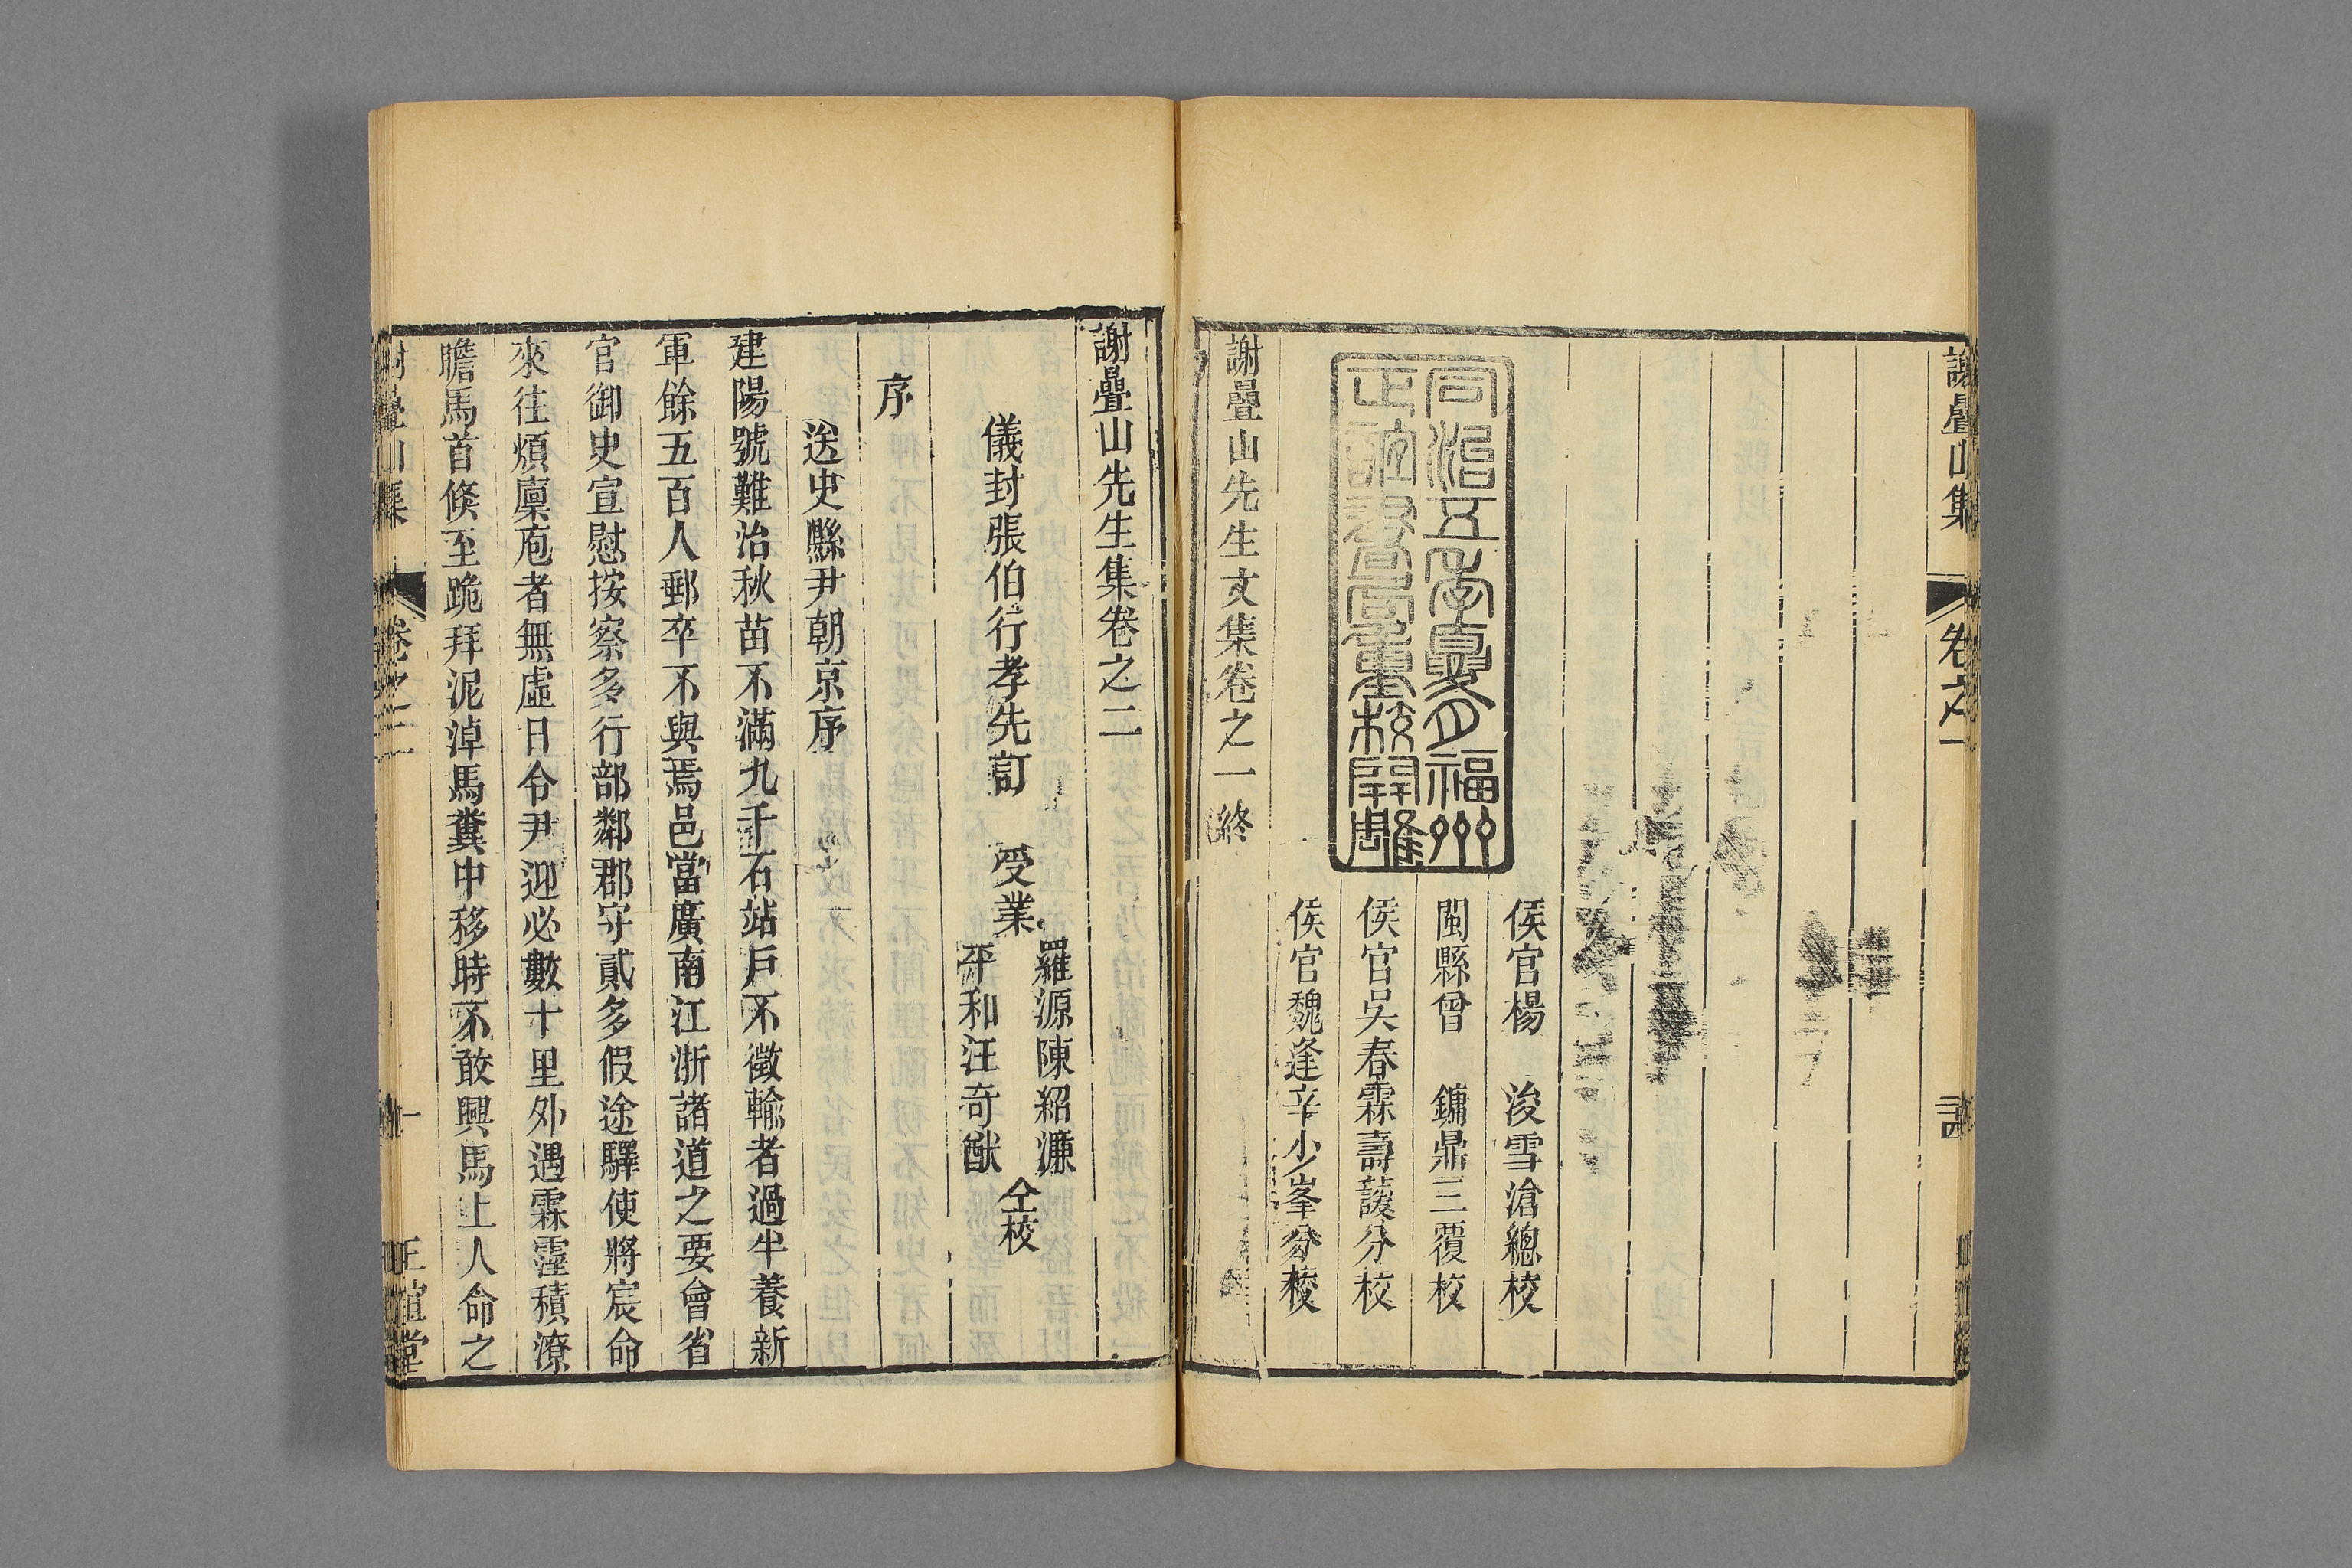 謝疊山集 卷之一
侯官楊 浚雪滄總校
閩縣曾 鏞鼎三覆校
侯官吳春霖壽護分校
侯官魏逢辛小峯分校
同治五年夏月福州
正誼書局重校開雕
謝疊山先生文集卷之一終
謝疊山先生集卷之二
儀封張伯行孝先訂 受業
羅源陳紹濂
平和汪奇猷
仝校
序
送史縣尹朝京序
建陽號難治秋苗不滿九千石站戶不徵輸者過半養新
軍餘五百人郵卒不與焉邑當廣南江浙諸道之要會省
官御史宣慰按察多行部鄰郡守貳多假途驛使將宸命
來往煩廩庖者無虛日令尹迎必數十里外遇霖霪積潦
瞻馬首倏至跪拜泥淖馬糞中移時不敢興馬上人命之
謝疊山集 卷之二 一 正誼堂